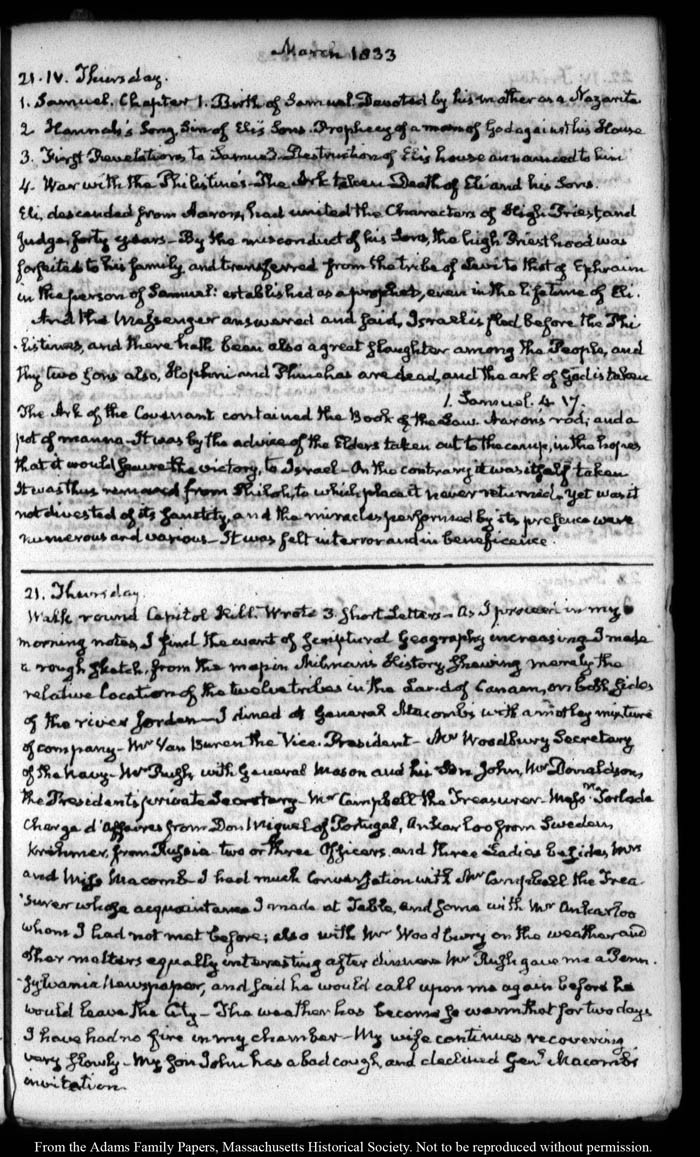 March 1833
21. IV. Thursday.
1. Samuel. Chapter 1. Birth of Samuel. Devoted by his mother as a Nazarite
2 Hannah's Song. Sin of Eli's Sons. Prophecy of a man of God against his House
3. First Revelations to Samuel. Destruction of Eli's house announced to him
4. War with the Philistines. The Ark taken. Death of Eli and his Sons.
Eli, descended from Aaron, had united the Characters of High Priest and
Judge, forty years – By the misconduct of his Sons, the high Priesthood was
forfeited to his family, and transferred from the tribe of Levi to that of Ephraim
in the person of Samuel: established as a prophet, even in the lifetime of Eli.
And the Messenger answered and said, Israel is fled before the Phi
listines, and there hath been also a great slaughter among the People, and
thy two sons also, Hophni and Phinehas are dead, and the ark of God is taken
1. Samuel. 4 17.
The Ark of the Covenant contained the Book of the Law Aaron's rod, and a
pot of manna – It was by the advice of the Elders taken out to the camp, in the hopes
that it would secure the victory, to Israel – On the contrary it was itself taken
It was thus removed from Shiloh, to which place it never returned. Yet was it
not divested of its sanctity, and the miracles performed by its presence were
numerous and various – It was felt in terror and in beneficence.
21. Thursday.
Walk round Capitol Hill. Wrote 3 short Letters – As I proceed in my
morning notes, I find the want of scriptural Geography increasing I made
a rough sketch, from the map in Milman's History, shewing merely the
relative location of the twelve tribes in the Land of Canaan, on both sides
of the river Jordan – I dined at General Macomb's with a motley mixture
of company – Mr Van Buren the Vice-President – Mr Woodbury Secretary
of the Navy – Mr Rush, with General Mason and his Son John, Mr Donaldson,
the President's private Secretary – Mr Campbell the Treasurer – Messrs Torlade
Chargé d'Affaires from Don Miguel of Portugal, Ankarloo from Sweden,
Krehmer, from Russia two or three Officers and three Ladies besides, Mrs
and Miss Macomb – I had much conversation with Mr Campbell the Trea
surer whose acquaintance I made at Table, and some with Mr Ankarloo
whom I had not met before; also with Mr Woodbury on the weather and
other matters equally interesting after dinner Mr Rush gave me a Penn
sylvania Newspaper, and said he would call upon me again before he
would leave the City – The weather has become so warm that for two days
I have had no fire in my chamber – My wife continues recovering
very slowly – My son John has a bad cough, and declined Genl Macomb's
invitation.
From the Adams Family Papers, Massachusetts Historical Society. Not to be reproduced without permission.